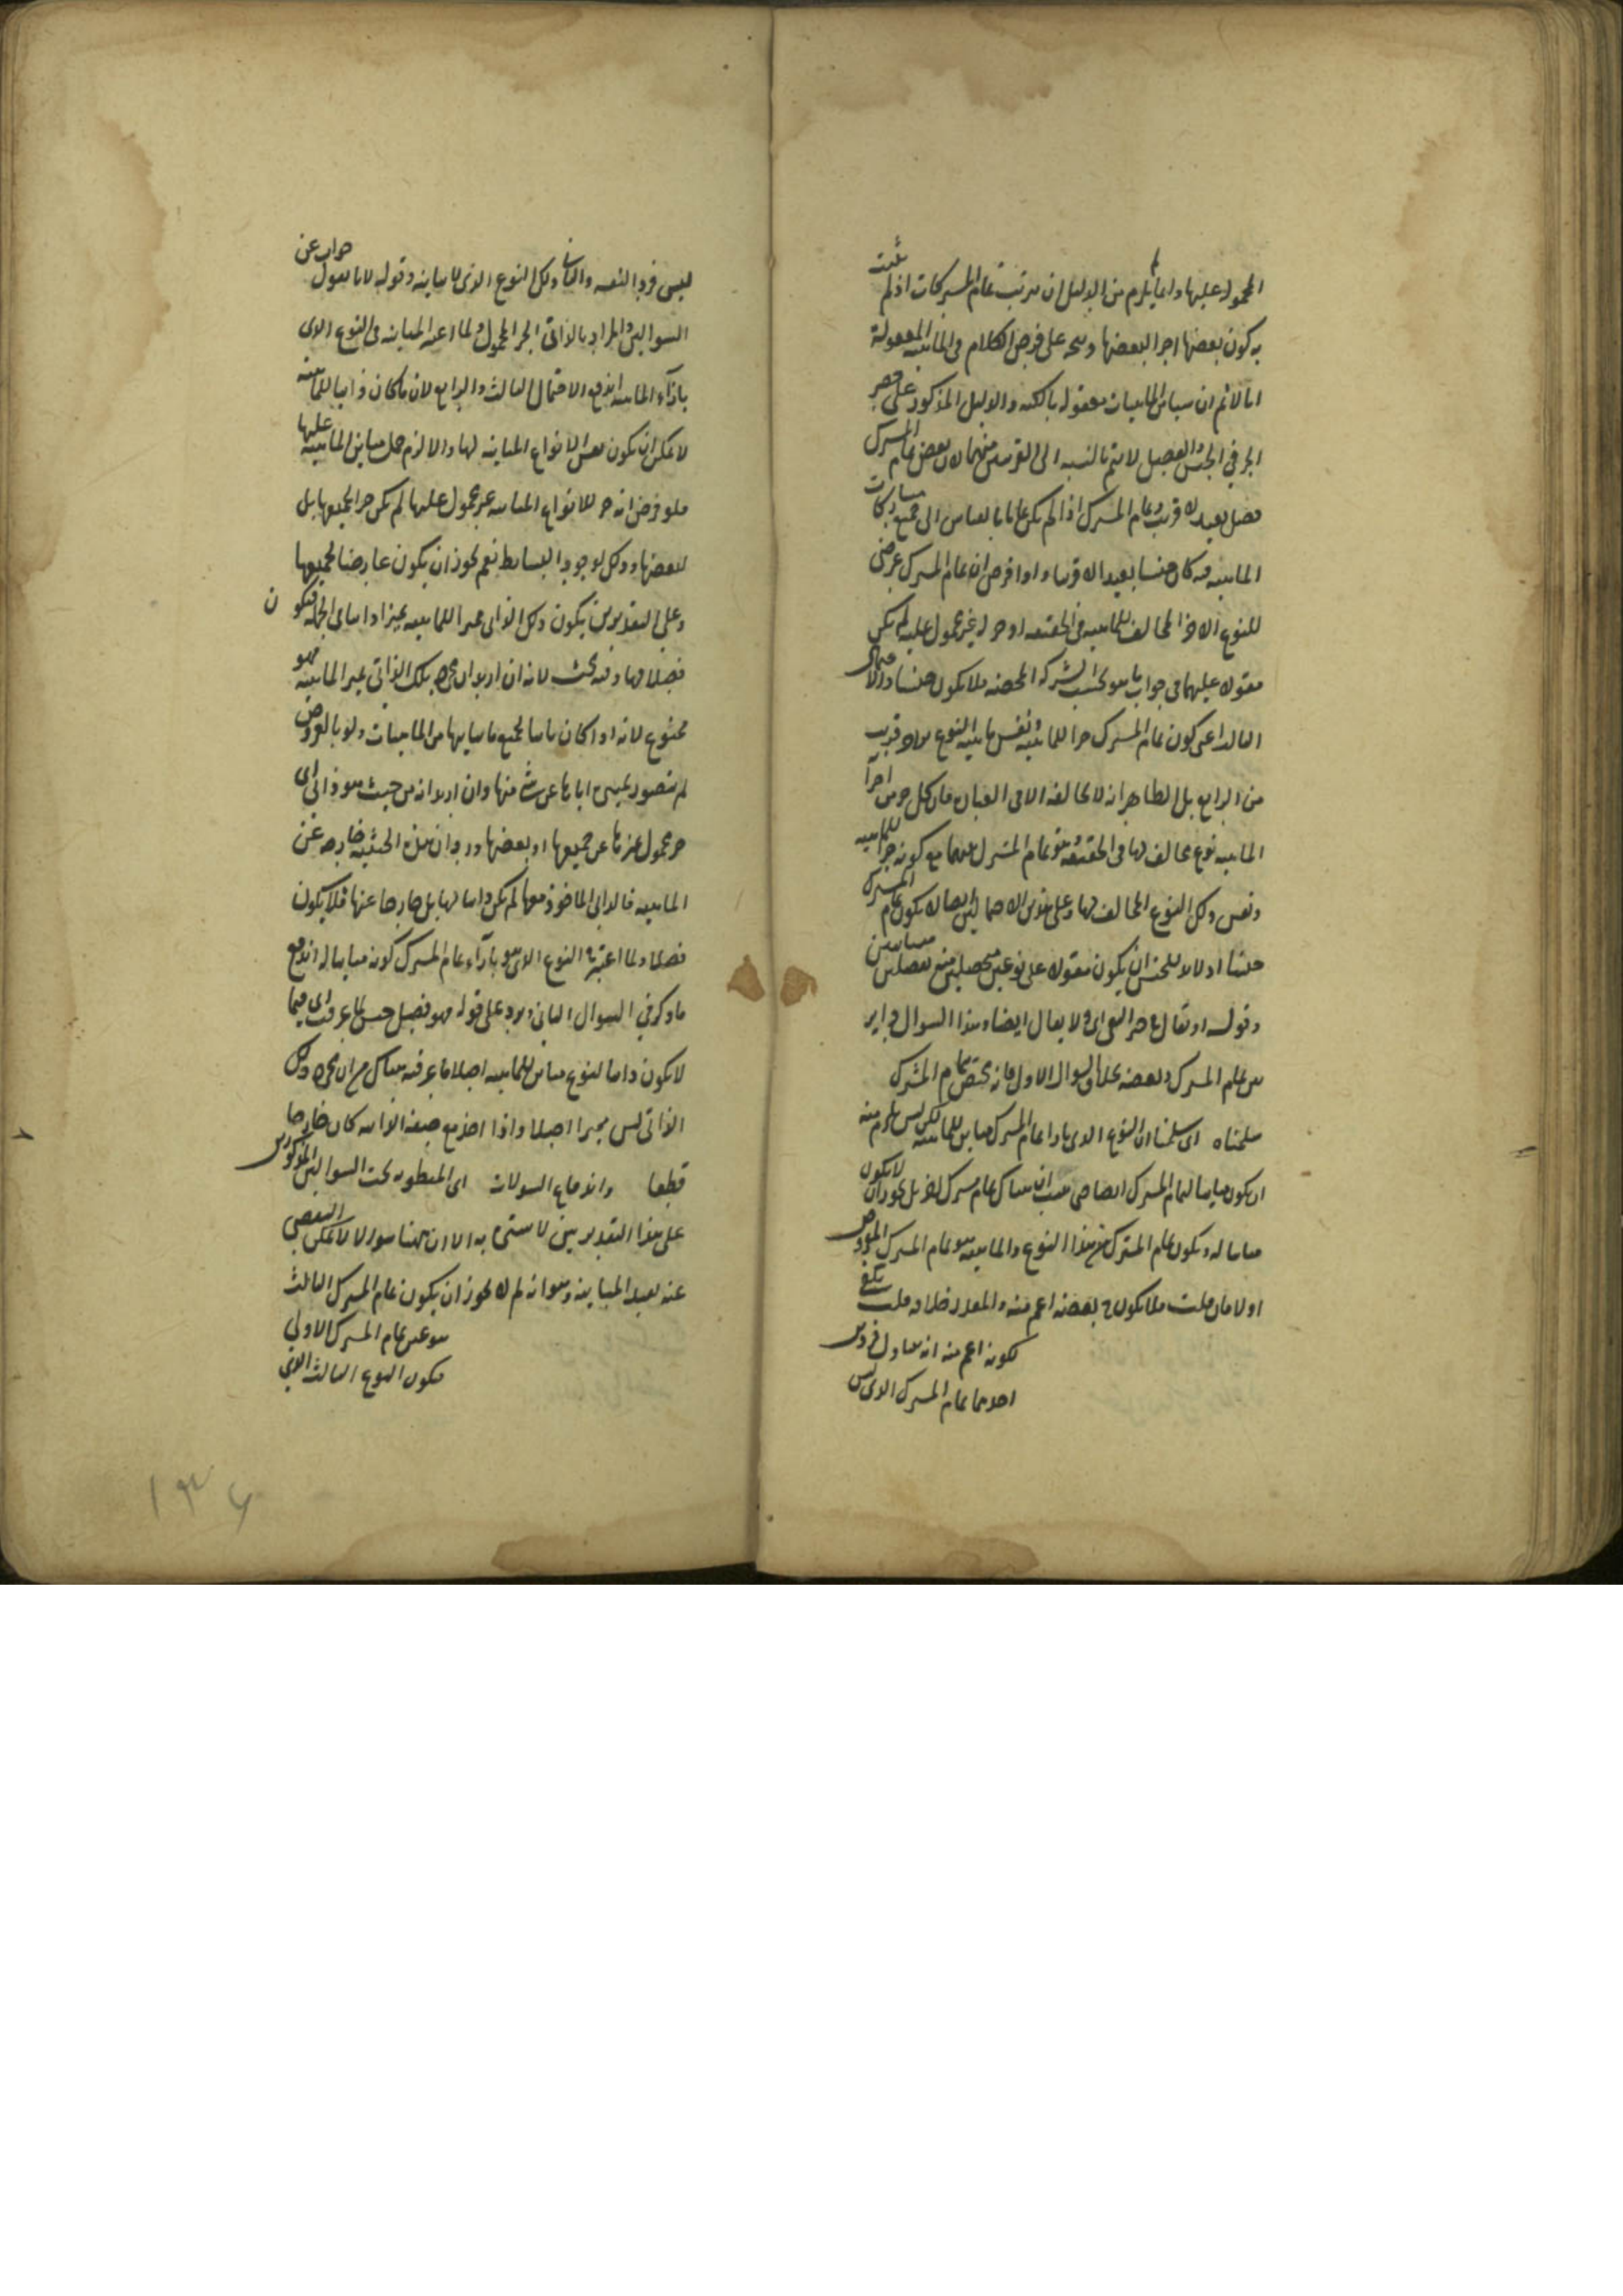 المحمولة عليها وانما يلزم من الدليل ان ترتب تمام المشتركات اذ لم يثبت
به كون بعضها اجزا لبعضها وبنحه على فرض الكلام في الماهية المعقولة
انا لا نم ان سائر الماهيات معقولة بالكنه والدليل المذكور على حصر
الجزء في الجنس والفصيل لا يتم بالنسبة الى القريب منهما لان بعض تمام المشترك
فصل بعيد لا قريب وتمام المشترك اذا لم يكن تماما بالقياس الى جميع مشاركات
الماهية فيه كان جنسا بعيدا لا قريبا واذا فرض ان تمام المشترك عرضى
للنوع الاخر المخالف للماهية في الحقيقة او جزء له غير محمول عليه لم يكن
مقولا عليهما في جواب ما هو بحسب الشركة المحضة فلا يكون جنسا
الثالث اعنى كون تمام المشترك جزا للماهية ونفس ماهية النوع قريب
من الرابع بل الظاهر انه لا يخالفه الا في العبارة فان كل جزء من اجزا
الماهية نوع مخالف لها في الحقيقة هو تمام المشترك بينهما مع كونه جزا للماهية
ونفس ذلك النوع المخالف لها وعلى هذين الاحتمالين ايضا لا يكون تمام المشترك
جنسا اذ لا بد للجنس ان يكون مقولا على نوعين متحصلين متباينين
وقوله او يقال الى ولا يقال ايضا وهذا السوال
بين تمام المشترك وبعضه بخلاف السوال الاول فانه يختص بتمام المشترك
سلمناه اى سلمنا ان النوع الذى بازاء تمام المشترك مباين للماهية لكن ليس يلزم منه
ان يكون مباينا لتمام المشترك ايضا حتى يثبت ان هناك تمام مشترك اخر بل يجوز ان لا يكون
مباينا له ويكون تمام المشترك بين هذا النوع والماهية هو تمام المشترك المفروض
اولا فان قلت فلا يكون بعضه اعم منه والمقدر خلافه قلت يكفى
لكونه اعم منه انه يتناول فردين
احدهما تمام المشترك الذى ليس
ليس فردا لنفسه والثانى ذلك النوع الذى لا يباينه وقوله لانا نقول جواب عن
السوالين والمراد بالذاتى الجزء المحمول ولما اعتبر المباينة في النوع الذى
بازآء الماهية اندفع الاحتمال الثالث والرابع لان ما كان ذاتيا للماهية
لا يمكن ان يكون نفس الانواع المباينة لها والا لزم حمل مباين الماهية عليها
فلو فرض انه جزء للانواع المباينة غير محمول عليها لم يكن جزا لجميعها بل
لبعضها وذلك لوجود البسائط نعم يجوز ان يكون عارضا لجميعها
وعلى التقديرين يكون ذلك الذاتى مميزا للماهية تمييزا ذاتيا في الجملة فيكون
فصلا لها وفيه بحث لانه ان اريد ان مجرد ذلك الذاتى يميز الماهية فهو
ممنوع لانه اذا كان ثابتا لجميع ما يباينها من الماهيات ولو بالعروض
لم يتصور تمييزه اياها عن شئ منها وان اريد انه من حيث هو ذاتى اى
جزء محمول يميزها عن جميعها او بعضها ورد ان هذه الحيثية خارجة عن
الماهية فالذاتى الماخوذ معها لم يكن ذاتيا لها بل خارجا عنها فلا يكون
فصلا ولما اعتبر في النوع الذى هو بازآء تمام المشترك كونه مباينا له اندفع
ما ذكر في السوال الثانى ويرد على قوله فهو فصيل جنس ما عرفت اى فيما
لا يكون ذاتيا لنوع مباين للماهية اصلا ما عرفته هناك من ان مجرد ذلك
الذاتى ليس مميزا اصلا واذا اخذ مع صفة الذاتية كان خارجا
قطعا واندفاع السولات اى المنطوية تحت السوالين المذكورين
على هذا التقدير بين لا سترة به الا ان ههنا سوالا لا يمكن التفصى
عنه بعيد المباينة وهو انه لم لا يجوز ان يكون تمام المشترك الثالث
هو عين تمام المشترك الاول
فيكون النوع الثالث الذى
١٣٦